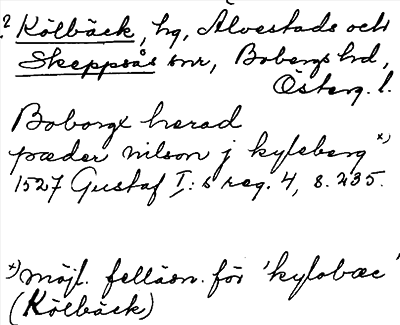 ? Kölbäck, hg, Älvestads och
Skeppsås snr, Bobergs hd,
Österg. l.
Boborgx herad
pæder nilson j kyleberg *)
1527 Gustaf I:s reg. 4, s. 235.
*) möjl. felläsn. för 'kylobæc'
(Kölbäck)